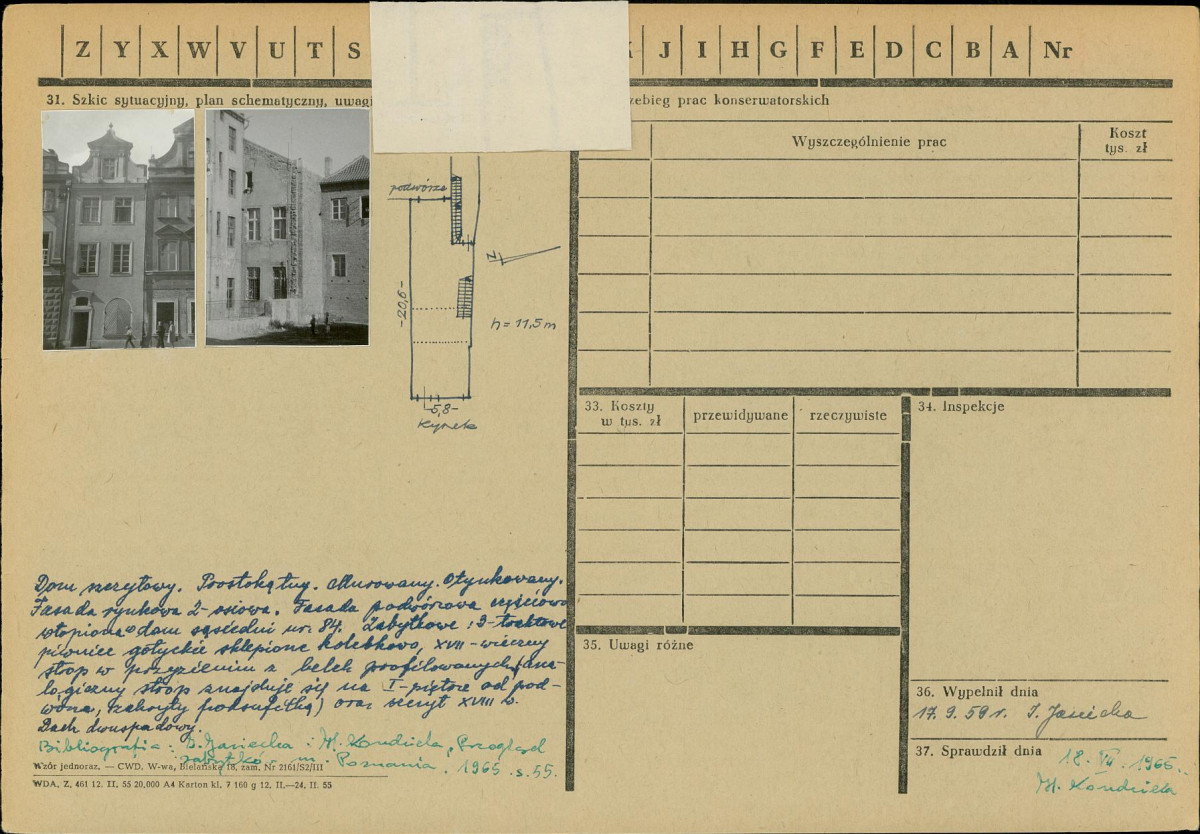 Z Y X W V U T S J I H G F E D C B A Nr
31. Szkic sytuacyjny, plan schematyczny, uwagi
rzebieg prac konserwatorskich
Wyszczególnienie prac
Koszt
tys. zł
podwórze
N
-20,6-
h = 11,5 m
-5,8-
Rynek
33. Koszty
w tys. zł
przewidywane
rzeczywiste
34. Inspekcje
35. Uwagi różne
36. Wypełnił dnia
17.9.59 r.
37. Sprawdził dnia
1965.
H. Kondziela
Dom szczytowy. Prostokątny. Murowany. Otynkowany.
Fasada rynkowa 2-osiowa. Fasada podwórzowa częściowo
wtopiona w dom sąsiedni nr. 84. Zabytkowe: 3-traktowe
piwnice gotyckie sklepione kolebkowo, XVII-wieczny
strop w przyziemiu z belek profilowanych (ana-
logiczny strop znajduje się na I-piętrze od pod-
wórza, zakryty podsufitką) oraz szczyt XVIII w.
Dach dwuspadowy.
Bibliografia: H. Kondziela, Przegląd
zabytków m. Poznania. 1965. s. 55.
Wzór jednoraz. — CWD. W-wa, Bielańska 18, zam. Nr 2161/S2/III
WDA. Z. 461 12. II. 55 20,000 A4 Karton kl. 7 160 g 12. II.—24. II. 55